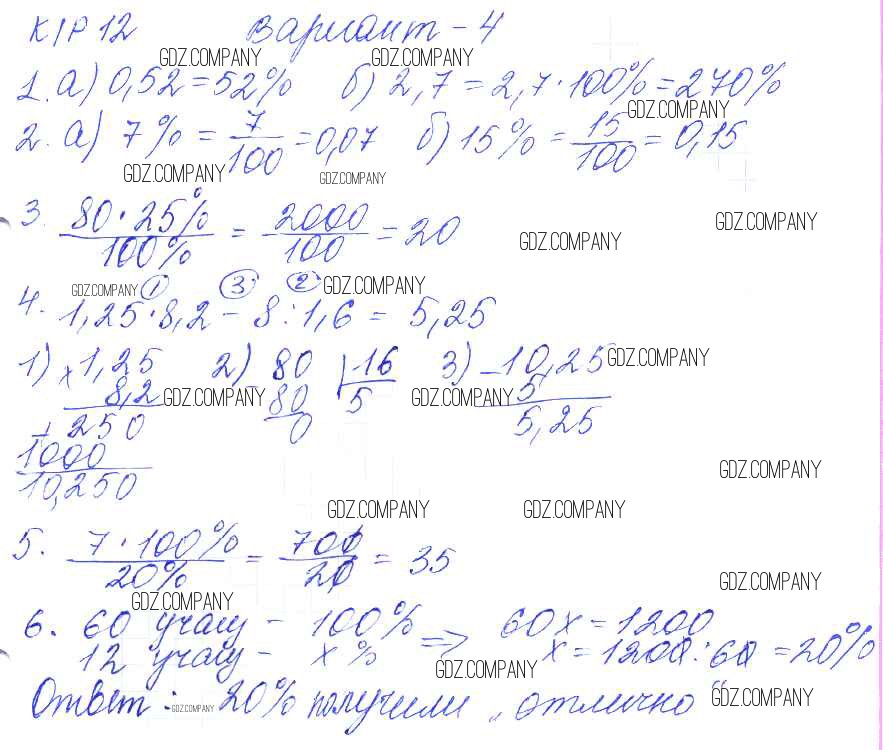 К/Р 12 Вариант - 4
GDZ.COMPANY GDZ.COMPANY
1. а) 0,52 = 52% б) 2,7 = 2,7 · 100% = 270%
GDZ.COMPANY
2. а) 7% = 7/100 = 0,07 б) 15% = 15/100 = 0,15
GDZ.COMPANY GDZ.COMPANY
3. 80 · 25% / 100% = 2000/100 = 20
GDZ.COMPANY GDZ.COMPANY
GDZ.COMPANY ① ③ ② GDZ.COMPANY
4. 1,25 · 8,2 - 8 : 1,6 = 5,25
1) × 1,25 2) 80 | 16 3) - 10,25 GDZ.COMPANY
8,2 GDZ.COMPANY 80 5 GDZ.COMPANY 5
+ 250 0 5,25
1000
10,250 GDZ.COMPANY
GDZ.COMPANY GDZ.COMPANY
5. 7 · 100% / 20% = 700/20 = 35
GDZ.COMPANY GDZ.COMPANY
6. 60 учащ - 100% => 60 x = 1200
12 учащ - x % x = 1200 : 60 = 20%
GDZ.COMPANY
Ответ: GDZ.COMPANY 20% получили „отлично“ GDZ.COMPANY